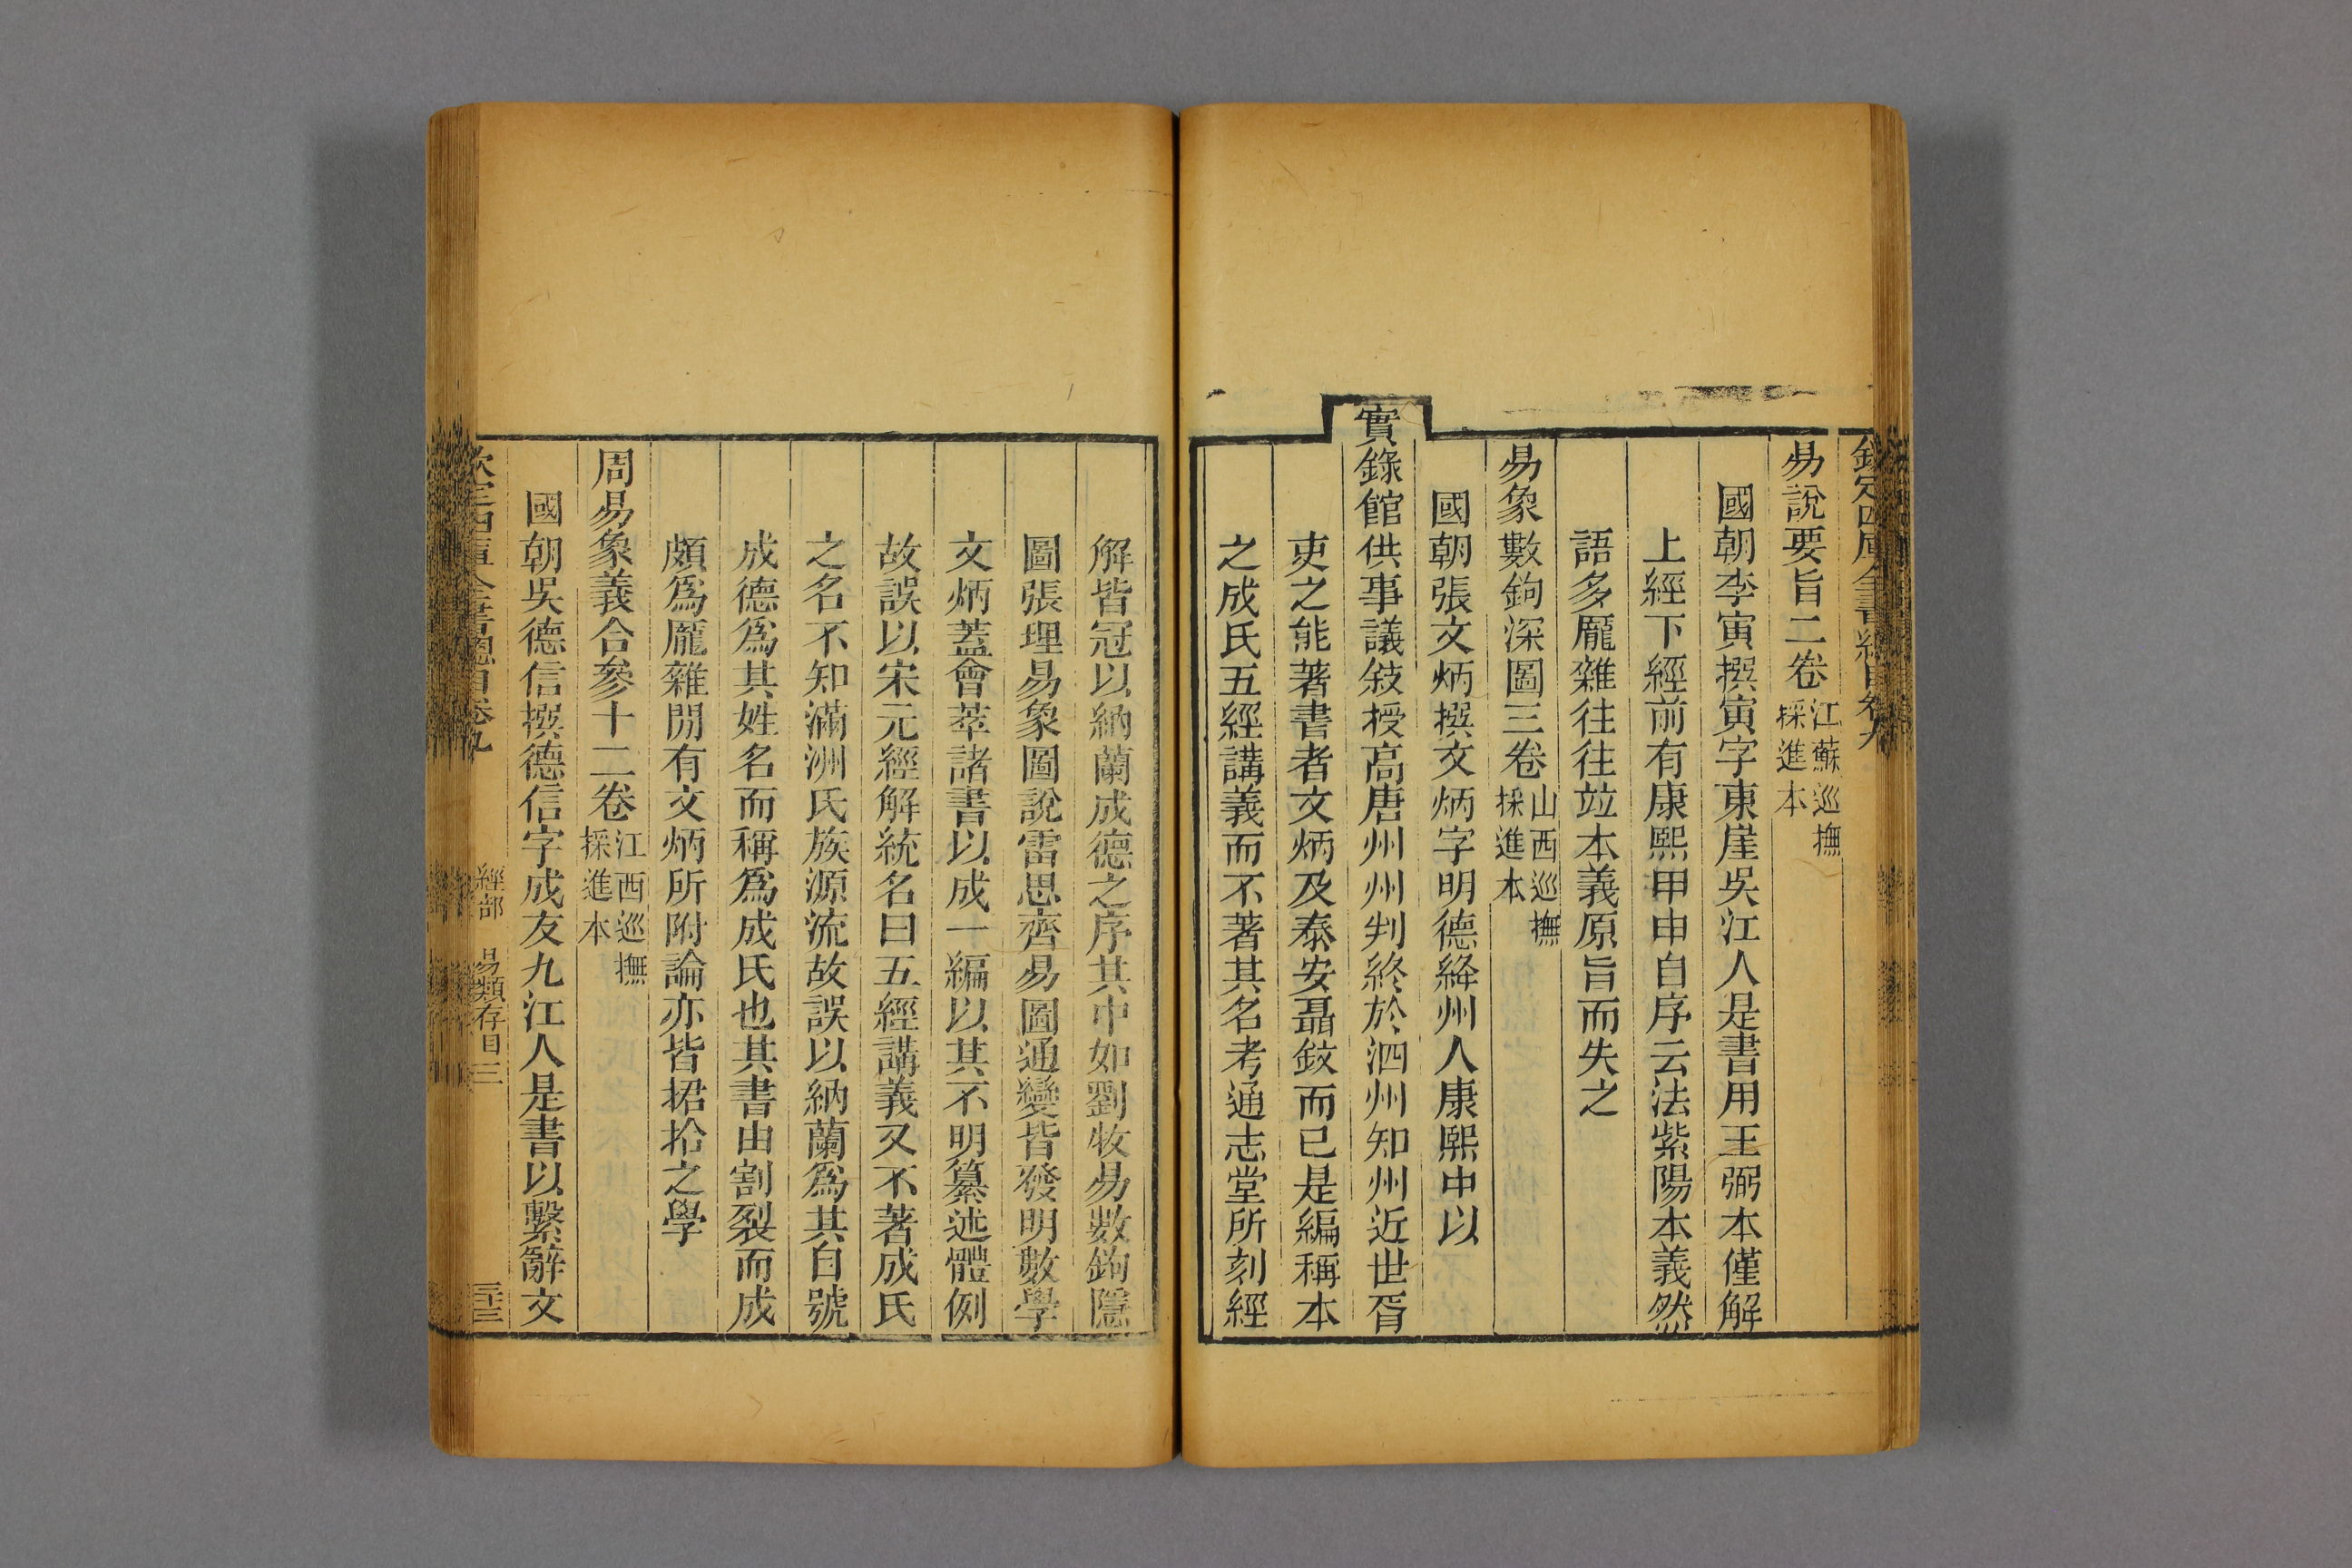 易說要旨二卷江蘇巡撫採進本
國朝李寅撰寅字東崖吳江人是書用王弼本僅解
上經下經前有康熙甲申自序云法紫陽本義然
語多龎雜往往竝本義原旨而失之
易象數鉤深圖三卷山西巡撫採進本
國朝張文炳撰文炳字明德絳州人康熙中以
實錄館供事議敘授高唐州州判終於泗州知州近世胥
吏之能著書者文炳及泰安聶鈫而已是編稱本
之成氏五經講義而不著其名考通志堂所刻經
解皆冠以納蘭成德之序其中如劉牧易數鉤隱
圖張理易象圖說雷思齊易圖通變皆發明數學
文炳蓋會萃諸書以成一編以其不明纂述體例
故誤以宋元經解統名曰五經講義又不著成氏
之名不知滿洲氏族源流故誤以納蘭爲其自號
成德爲其姓名而稱爲成氏也其書由割裂而成
頗爲龎雜閒有文炳所附論亦皆捃拾之學
周易象義合參十二卷江西巡撫採進本
國朝吳德信撰德信字成友九江人是書以繫辭文
欽定四庫全書總目卷九 經部 易類存目三